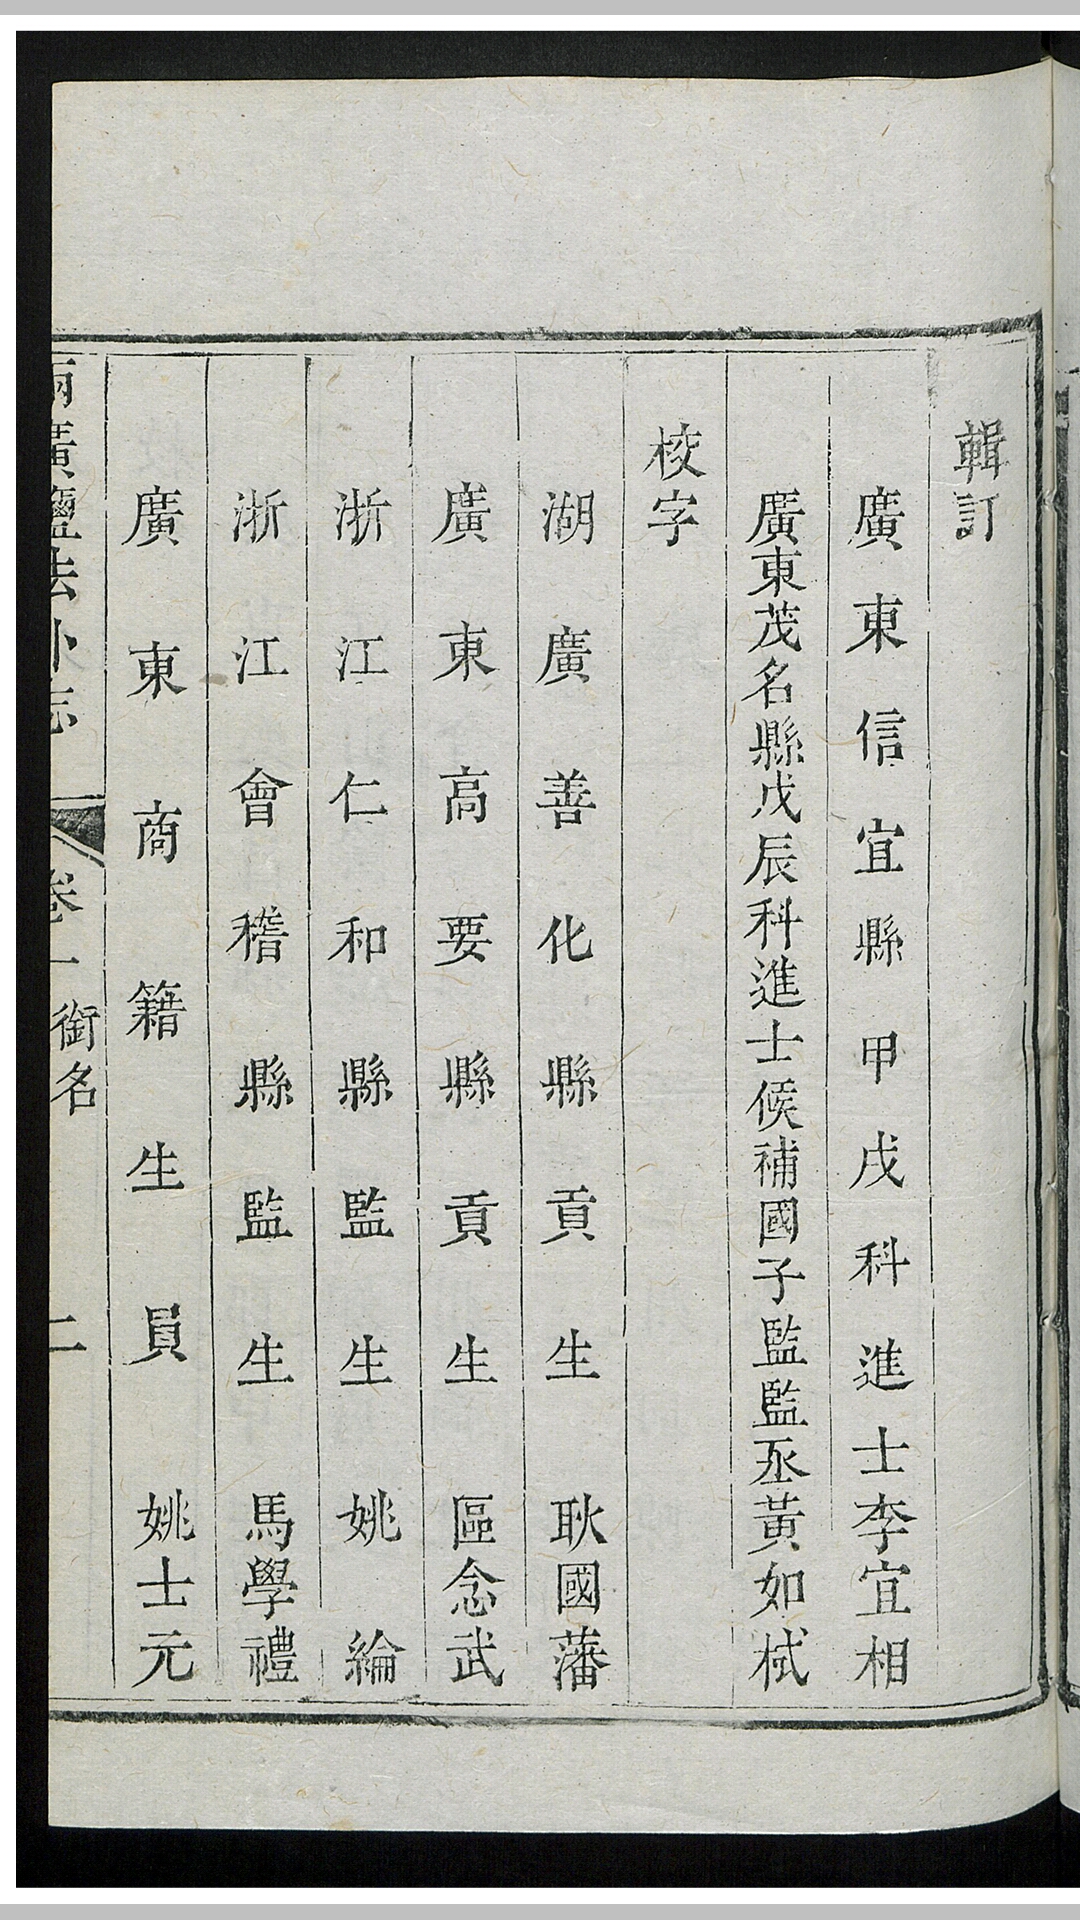 輯訂
廣東信宜縣甲戌科進士李宜相
廣東茂名縣戊辰科進士候補國子監監丞黃如栻
校字
湖廣善化縣貢生 耿國藩
廣東高要縣貢生 區念武
浙江仁和縣監生 姚綸
浙江會稽縣監生 馬學禮
廣東商籍生員 姚士元
兩廣鹽法外志 卷一 銜名 二